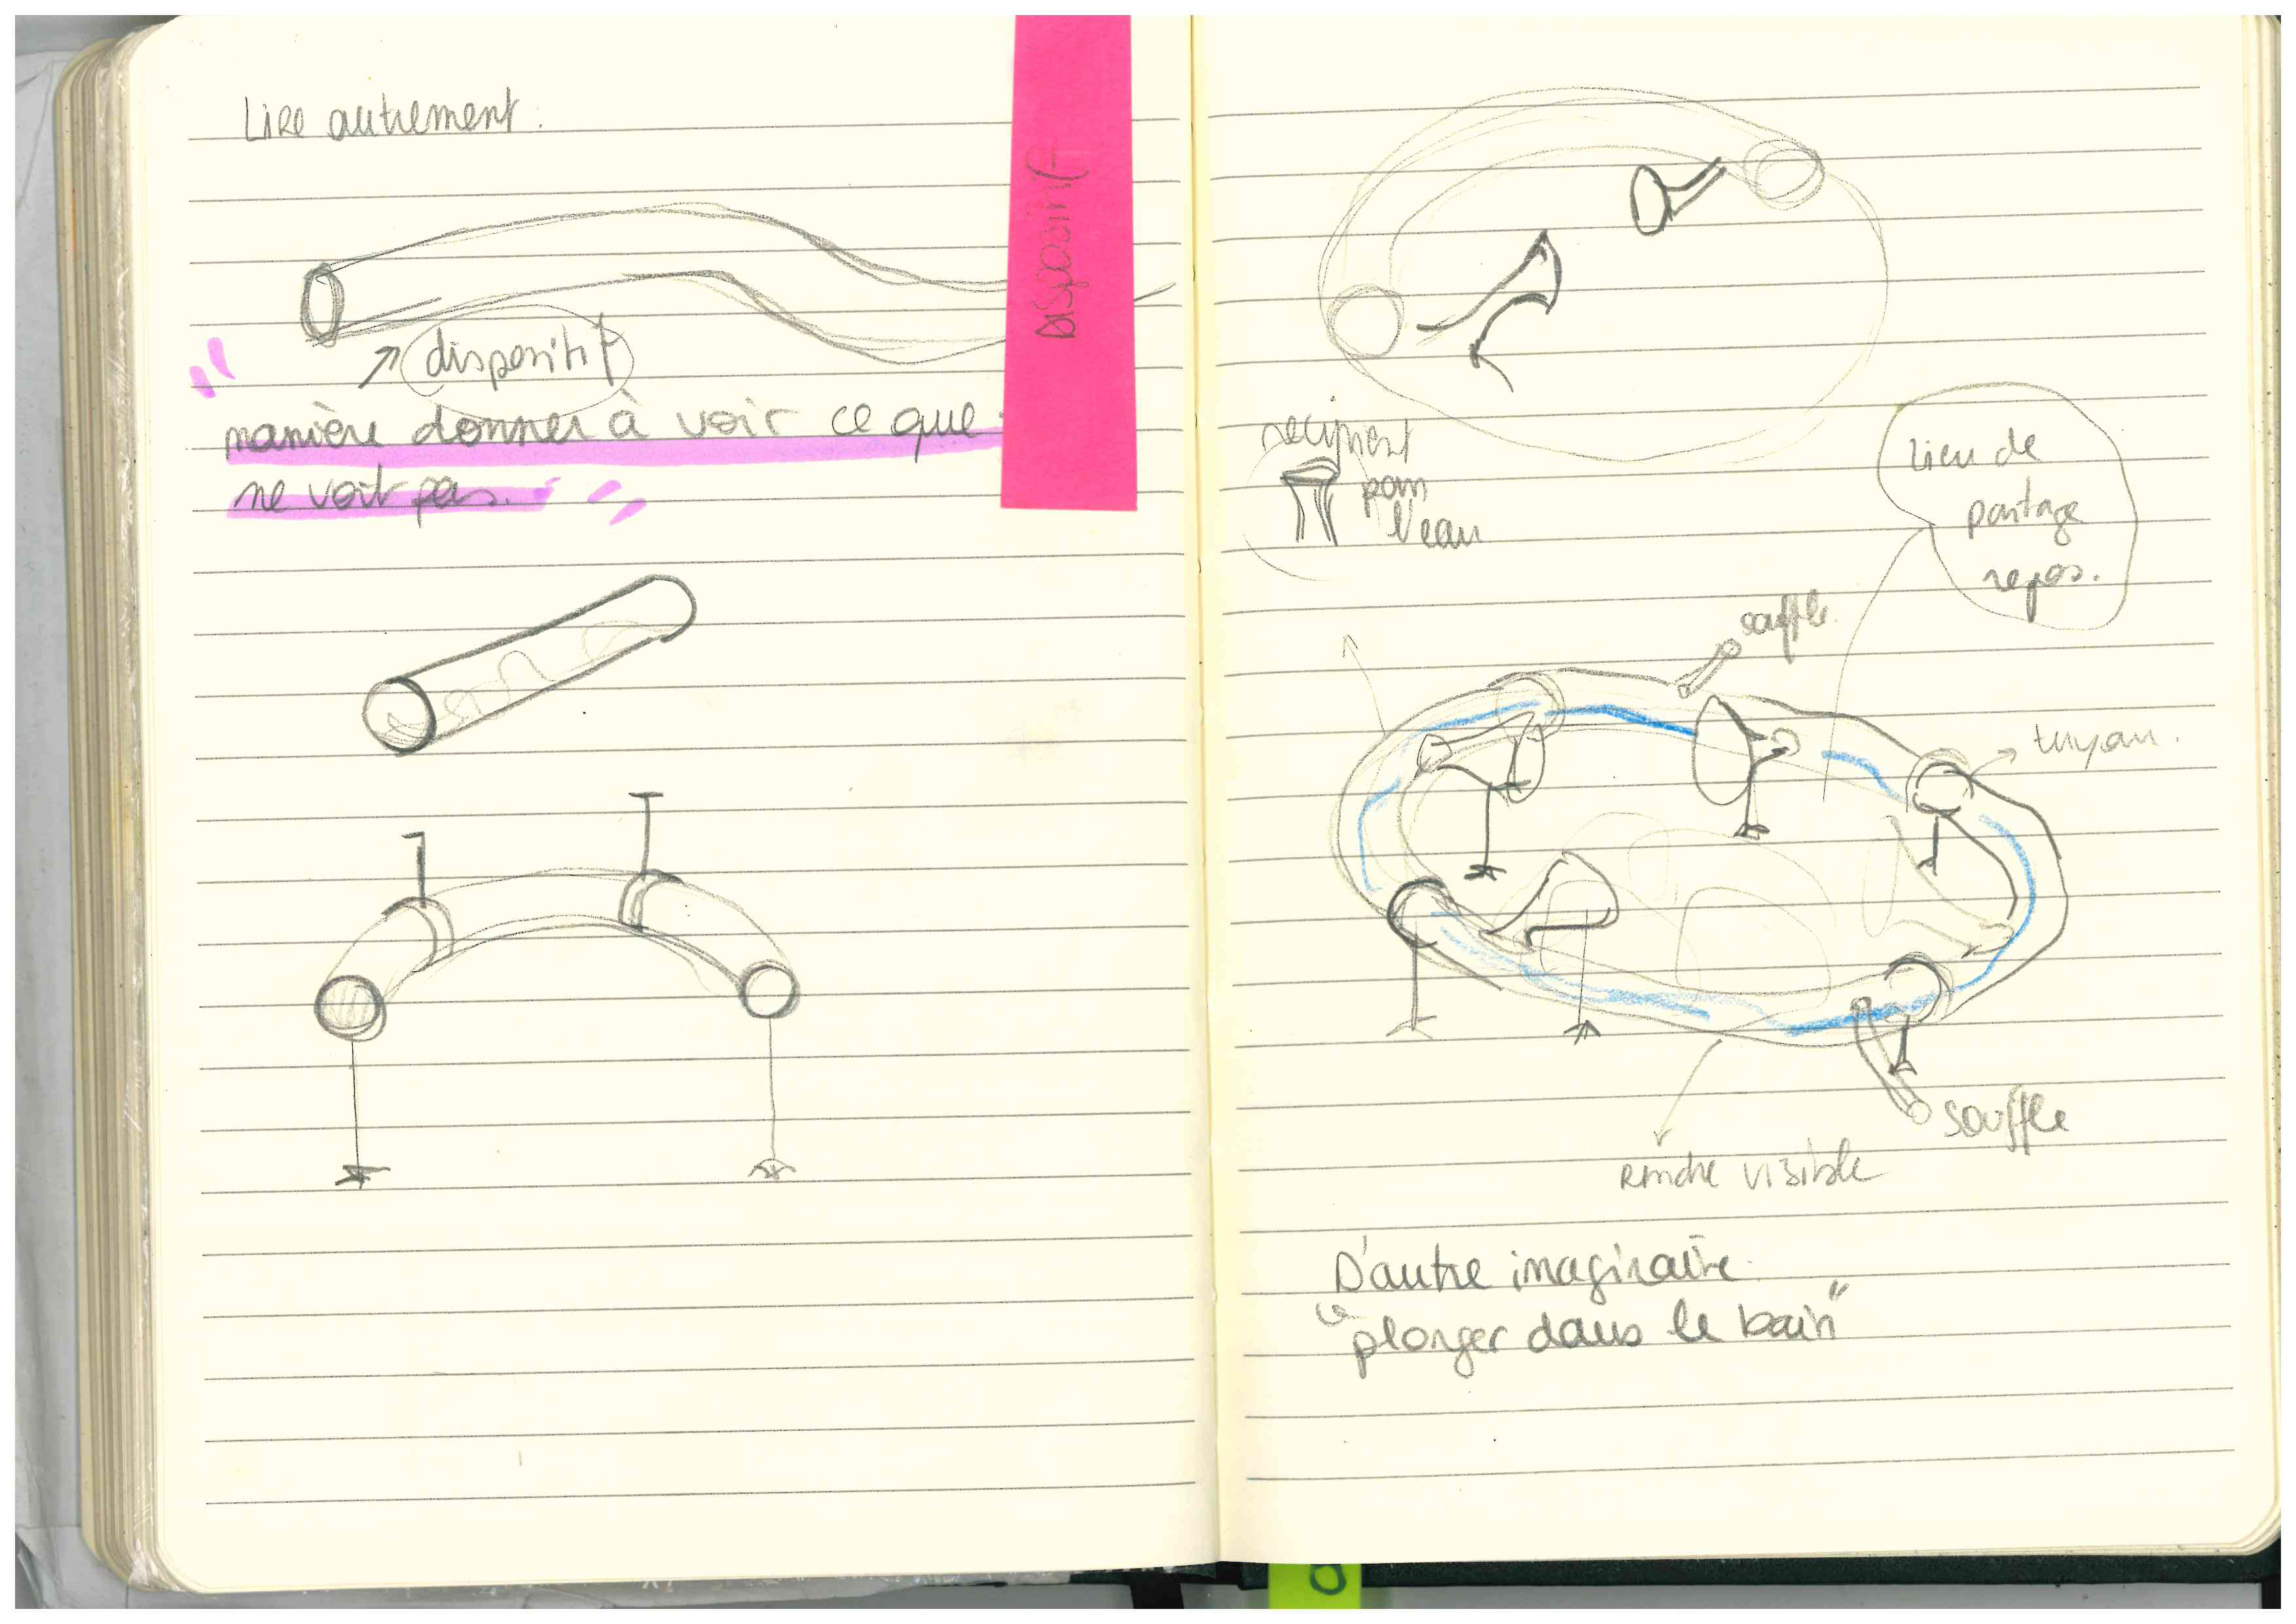 Lire autrement.
dispositif
"manière donner à voir ce que
ne voit pas."
Dispositif
recipient
pour
l'eau
lieu de
partage
repos.
souffle.
tuyau.
souffle
rendre visible
D'autre imaginaire.
"plonger dans le bain"